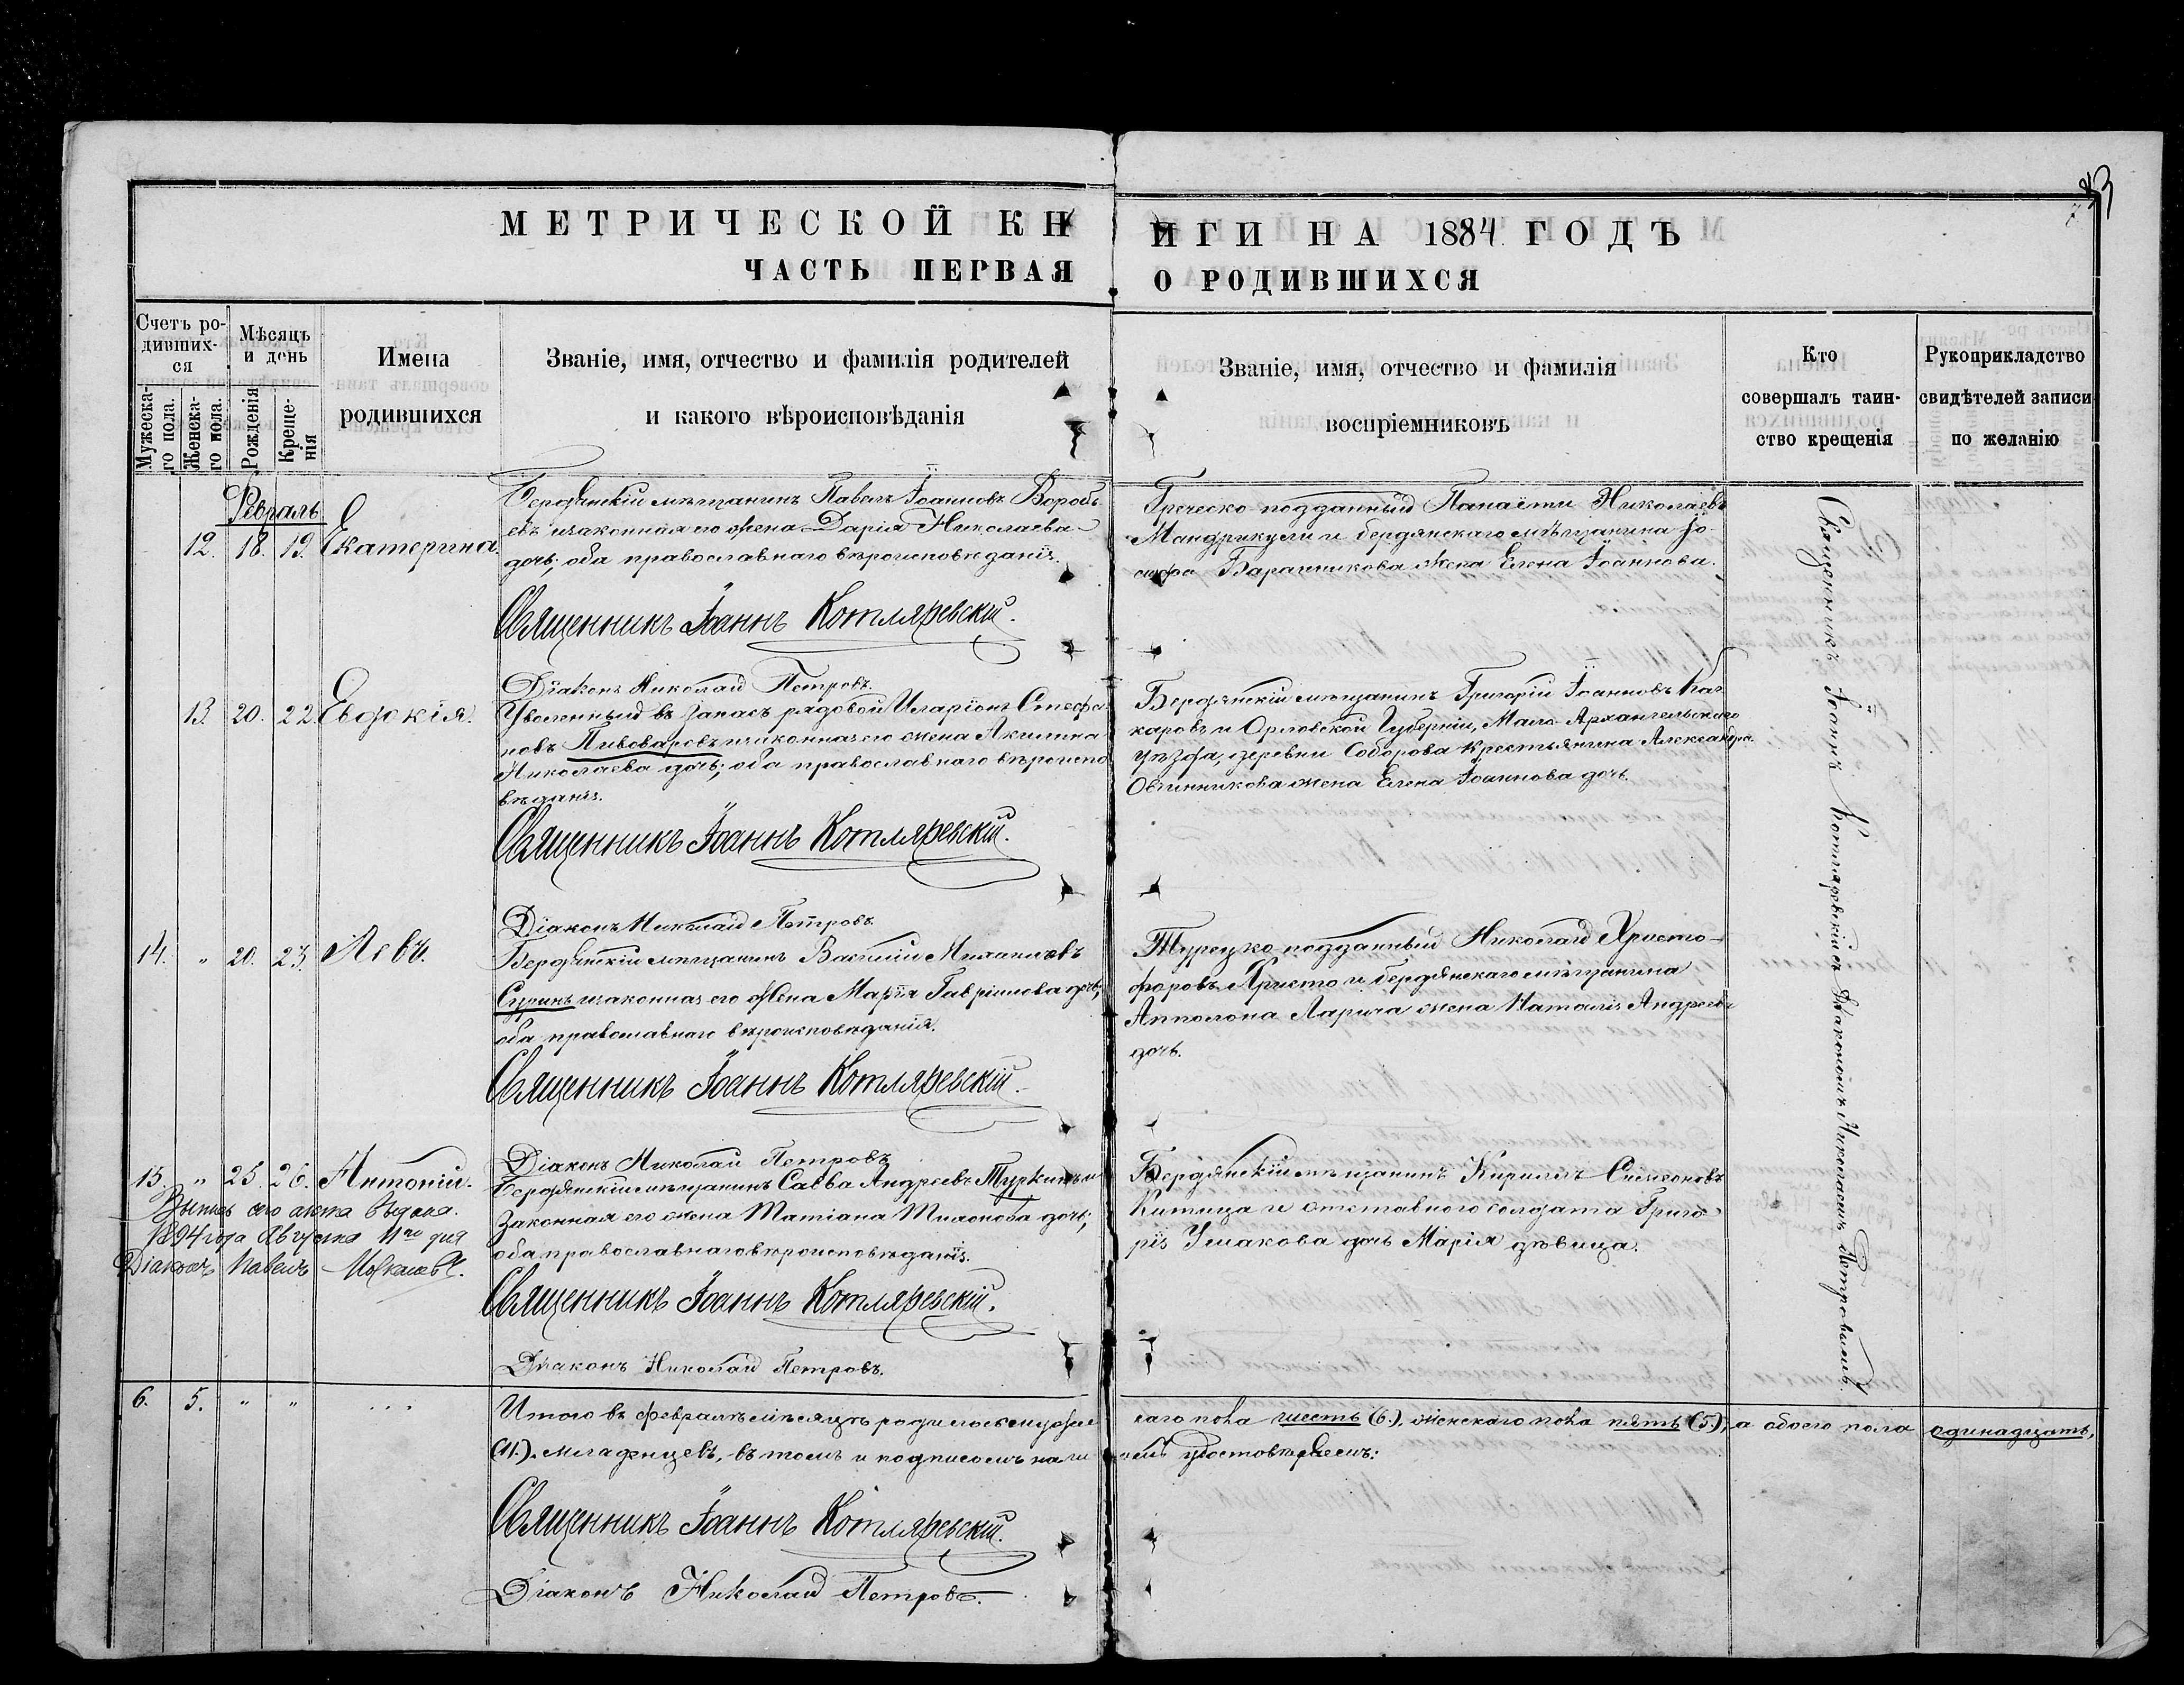 83
МЕТРИЧЕСКОЙ КНИГИ НА 1884 ГОДЪ
ЧАСТЬ ПЕРВАЯ О РОДИВШИХСЯ
Счетъ ро-
дивших-
ся
Мужеска-
го пола.
Женска-
го пола.
Мѣсяцъ
и день
Рожденія
Креще-
нія
Имена
родившихся
Званіе, имя, отчество и фамилія родителей
и какого вѣроисповѣданія
Званіе, имя, отчество и фамилія
воспріемниковъ
Кто
совершалъ таин-
ство крещенія
Рукоприкладство
свидѣтелей записи
по желанію
Февраль
12. 18. 19. Екатерина
Бердянскій мѣщанинъ Павелъ Іоанновъ Вороб-
евъ и законная его жена Дарія Николаева
дочь; оба православнаго вѣроисповѣданія.
Священникъ Іоаннъ Котляревскій.
Діаконъ Николай Петровъ.
Греческо-подданный Панаёти Николаевъ
Мандрикули и бердянскаго мѣщанина Іо-
сифа Баранникова жена Елена Іоаннова.
13. 20. 22. Евдокія.
Уволенный въ запасъ рядовой Иларіонъ Стефа-
новъ Пивоваровъ и законная его жена Акилина
Николаева дочь; оба православнаго вѣроиспо
вѣданія.
Священникъ Іоаннъ Котляревскій.
Діаконъ Николай Петровъ
Бердянскій мѣщанинъ Григорій Іоанновъ
каровъ и Орловской Губерніи, Мало-Архангельскаго
уѣзда, деревни Соборова Крестьянина Александра
Овчинникова жена Елена Іоаннова дочь.
14. " 20. 23. Левъ.
Бердянскій мѣщанинъ Василій Михаиловъ
Суринъ и законная его жена Марія Гавріилова дочь;
оба православнаго вѣроисповѣданія.
Священникъ Іоаннъ Котляревскій.
Діаконъ Николай Петровъ
Турецко-подданный Николай Христо-
форовъ Христо и бердянскаго мѣщанина
Апполона Ларича жена Наталія Андреева
дочь.
15. " 25. 26. Антоній.
Выпись сего акта выдана
1894 года Августа 11го дня
Діаконъ Павелъ
Бердянскій мѣщанинъ Савва Андреевъ Туркинъ и
законная его жена Татіана Тимонова дочь;
оба православнаго вѣроисповѣданія.
Священникъ Іоаннъ Котляревскій.
Діаконъ Николай Петровъ.
Бердянскій мѣщанинъ Кириллъ Симеоновъ
Китица и отставного солдата Григо-
рія Ушакова дочь Марія дѣвица.
Священникъ Іоаннъ Котляревскій съ Діакономъ Николаемъ Петровымъ.
6. 5. " " . . .
Итого въ февралѣ мѣсяцѣ родилось мужескаго пола шесть (6.), женскаго пола пять (5.); а обоего пола одинадцать,
(11.). младенцевъ, въ томъ и подписомъ нашимъ удостовѣряемъ:
Священникъ Іоаннъ Котляревскій.
Діаконъ Николай Петровъ.